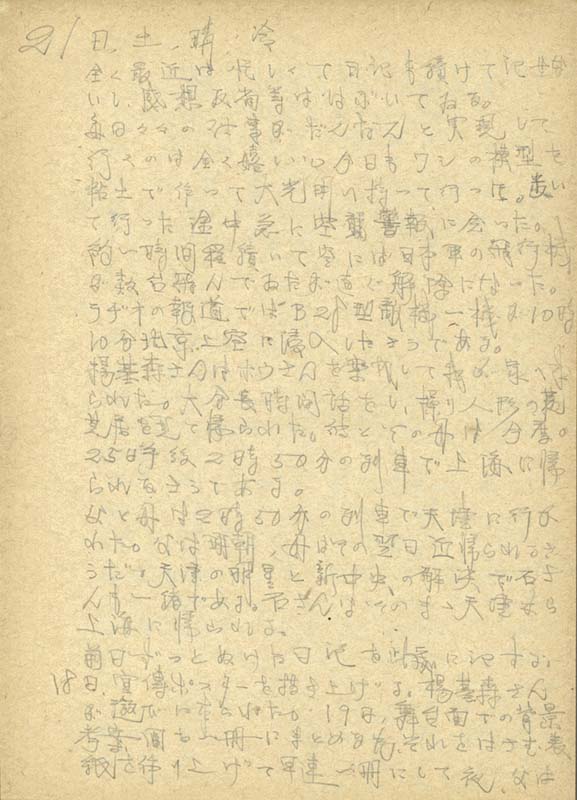 21日、土、晴、冷
全く最近は忙しくて日記を続けて記せな
いし、感想反省等はぶいてゐる。
毎日々々の仕事がだんだんと実現して
行くのは全く嬉しい。今日もワシの模型を
粘土で作って大光明に持って行った。
て行った途中急に空襲警報に会った。
約一時間程続いて空には日本軍の飛行機
が数台飛んでおたが直ぐ解除になった。
ラヂオの報道ではB29型敵機一機が10時
10分北京上空に侵入したさうである。
楊基森さんは
られた。大分長時間話をし、操り人形の
芝居を見て帰られた。
25日午後2時50分の列車で上海に帰
られるさうである。
父と母は2時50分の列車で天津に行か
れた。父は明朝、母は翌日近帰られるさ
うだ。天津の明星と新中央の解決で石
さんも一緒である。石さんはそのまゝ天津から
上海に帰られる。
前日ずっとぬけた日記を此処に記すなら
18日、宣傳ポスターを描き上げる。楊基森さん
が遊びに来られた。19日、舞台面での背景
考案画を一冊にまとめる為、それをはさむ表
紙を作り上げて早速一冊にして夜、父は